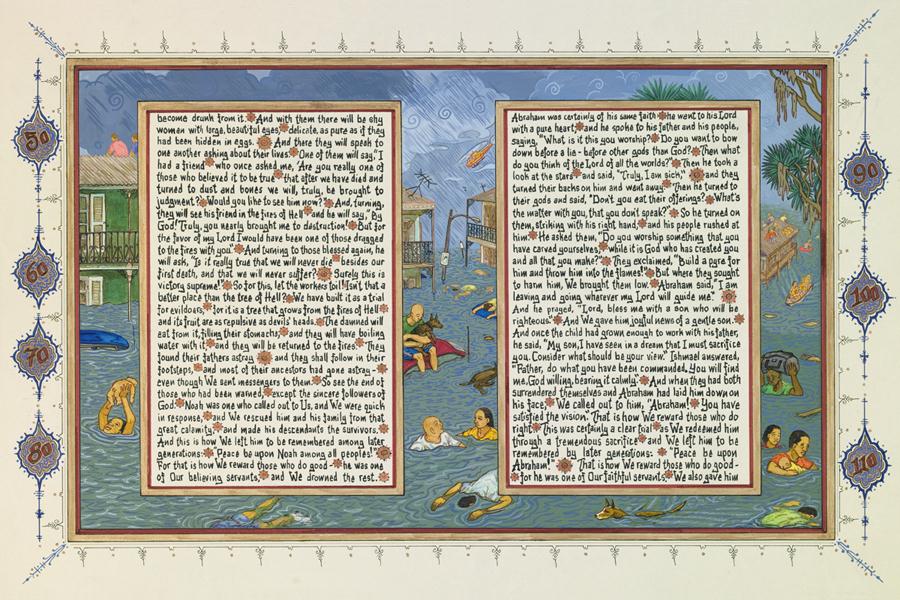 50
60
70
80
become drunk from it. And with them there will be shy
women with large, beautiful eyes, delicate, as pure as if they
had been hidden in eggs. And there they will speak to
one another asking about their lives. One of them will say, "I
had a friend who once asked me, 'Are you really one of
those who believed it to be true that after we have died and
turned to dust and bones we will, truly, be brought to
judgment?' Would you like to see him now?" And, turning,
they will see his friend in the fires of Hell and he will say, "By
God! Truly, you nearly brought me to destruction! But for
the favor of my Lord I would have been one of those dragged
to the fires with you." And turning to those blessed again, he
will ask, "Is it really true that we will never die besides our
first death, and that we will never suffer? Surely this is
victory supreme!" So for this, let the workers toil! Isn't that a
better place than the tree of Hell? We have built it as a trial
for evildoers, for it is a tree that grows from the fires of Hell
and its fruit are as repulsive as devils' heads. The damned will
eat from it, filling their stomachs, and they will have boiling
water with it, and they will be returned to the fires. They
found their fathers astray and they shall follow in their
footsteps, and most of their ancestors had gone astray-
even though We sent messengers to them. So see the end of
those who had been warned, except the sincere followers of
God. Noah was one who called out to Us, and We were quick
in response, and We rescued him and his family from that
great calamity, and made his descendants the survivors.
And this is how We left him to be remembered among later
generations: Peace be upon Noah among all peoples!
For that is how We reward those who do good- he was one
of Our believing servants, and We drowned the rest.
Abraham was certainly of his same faith he went to his Lord
with a pure heart, and he spoke to his father and his people,
saying, "What is it this you worship? Do you want to bow
down before a lie - before other gods than God? Then what
do you think of the Lord of all the worlds?" Then he took a
look at the stars and said, "Truly, I am sick," and they
turned their backs on him and went away. Then he turned to
their gods and said, "Don't you eat their offerings? What's
the matter with you, that you don't speak?" So he turned on
them, striking with his right hand, and his people rushed at
him. He asked them, "Do you worship something that you
have carved yourselves, while it is God who has created you
and all that you make?" They exclaimed, "Build a pyre for
him and throw him into the flames!" But where they sought
to harm him, We brought them low. Abraham said, "I am
leaving and going wherever my Lord will guide me."
And he prayed, "Lord, bless me with a son who will be
righteous." And We gave him joyful news of a gentle son.
And once the child had grown enough to work with his father,
he said, "My son, I have seen in a dream that I must sacrifice
you. Consider what should be your view." Ishmael answered,
"Father, do what you have been commanded. You will find
me, God willing, bearing it calmly." And when they had both
surrendered themselves and Abraham had laid him down on
his face, We called out to him, "Abraham! You have
satisfied the vision." That is how We reward those who do
right. This was certainly a clear trial as We redeemed him
through a tremendous sacrifice and We left him to be
remembered by later generations: "Peace be upon
Abraham!" That is how We reward those who do good-
for he was one of Our faithful servants. We also gave him
90
100
110